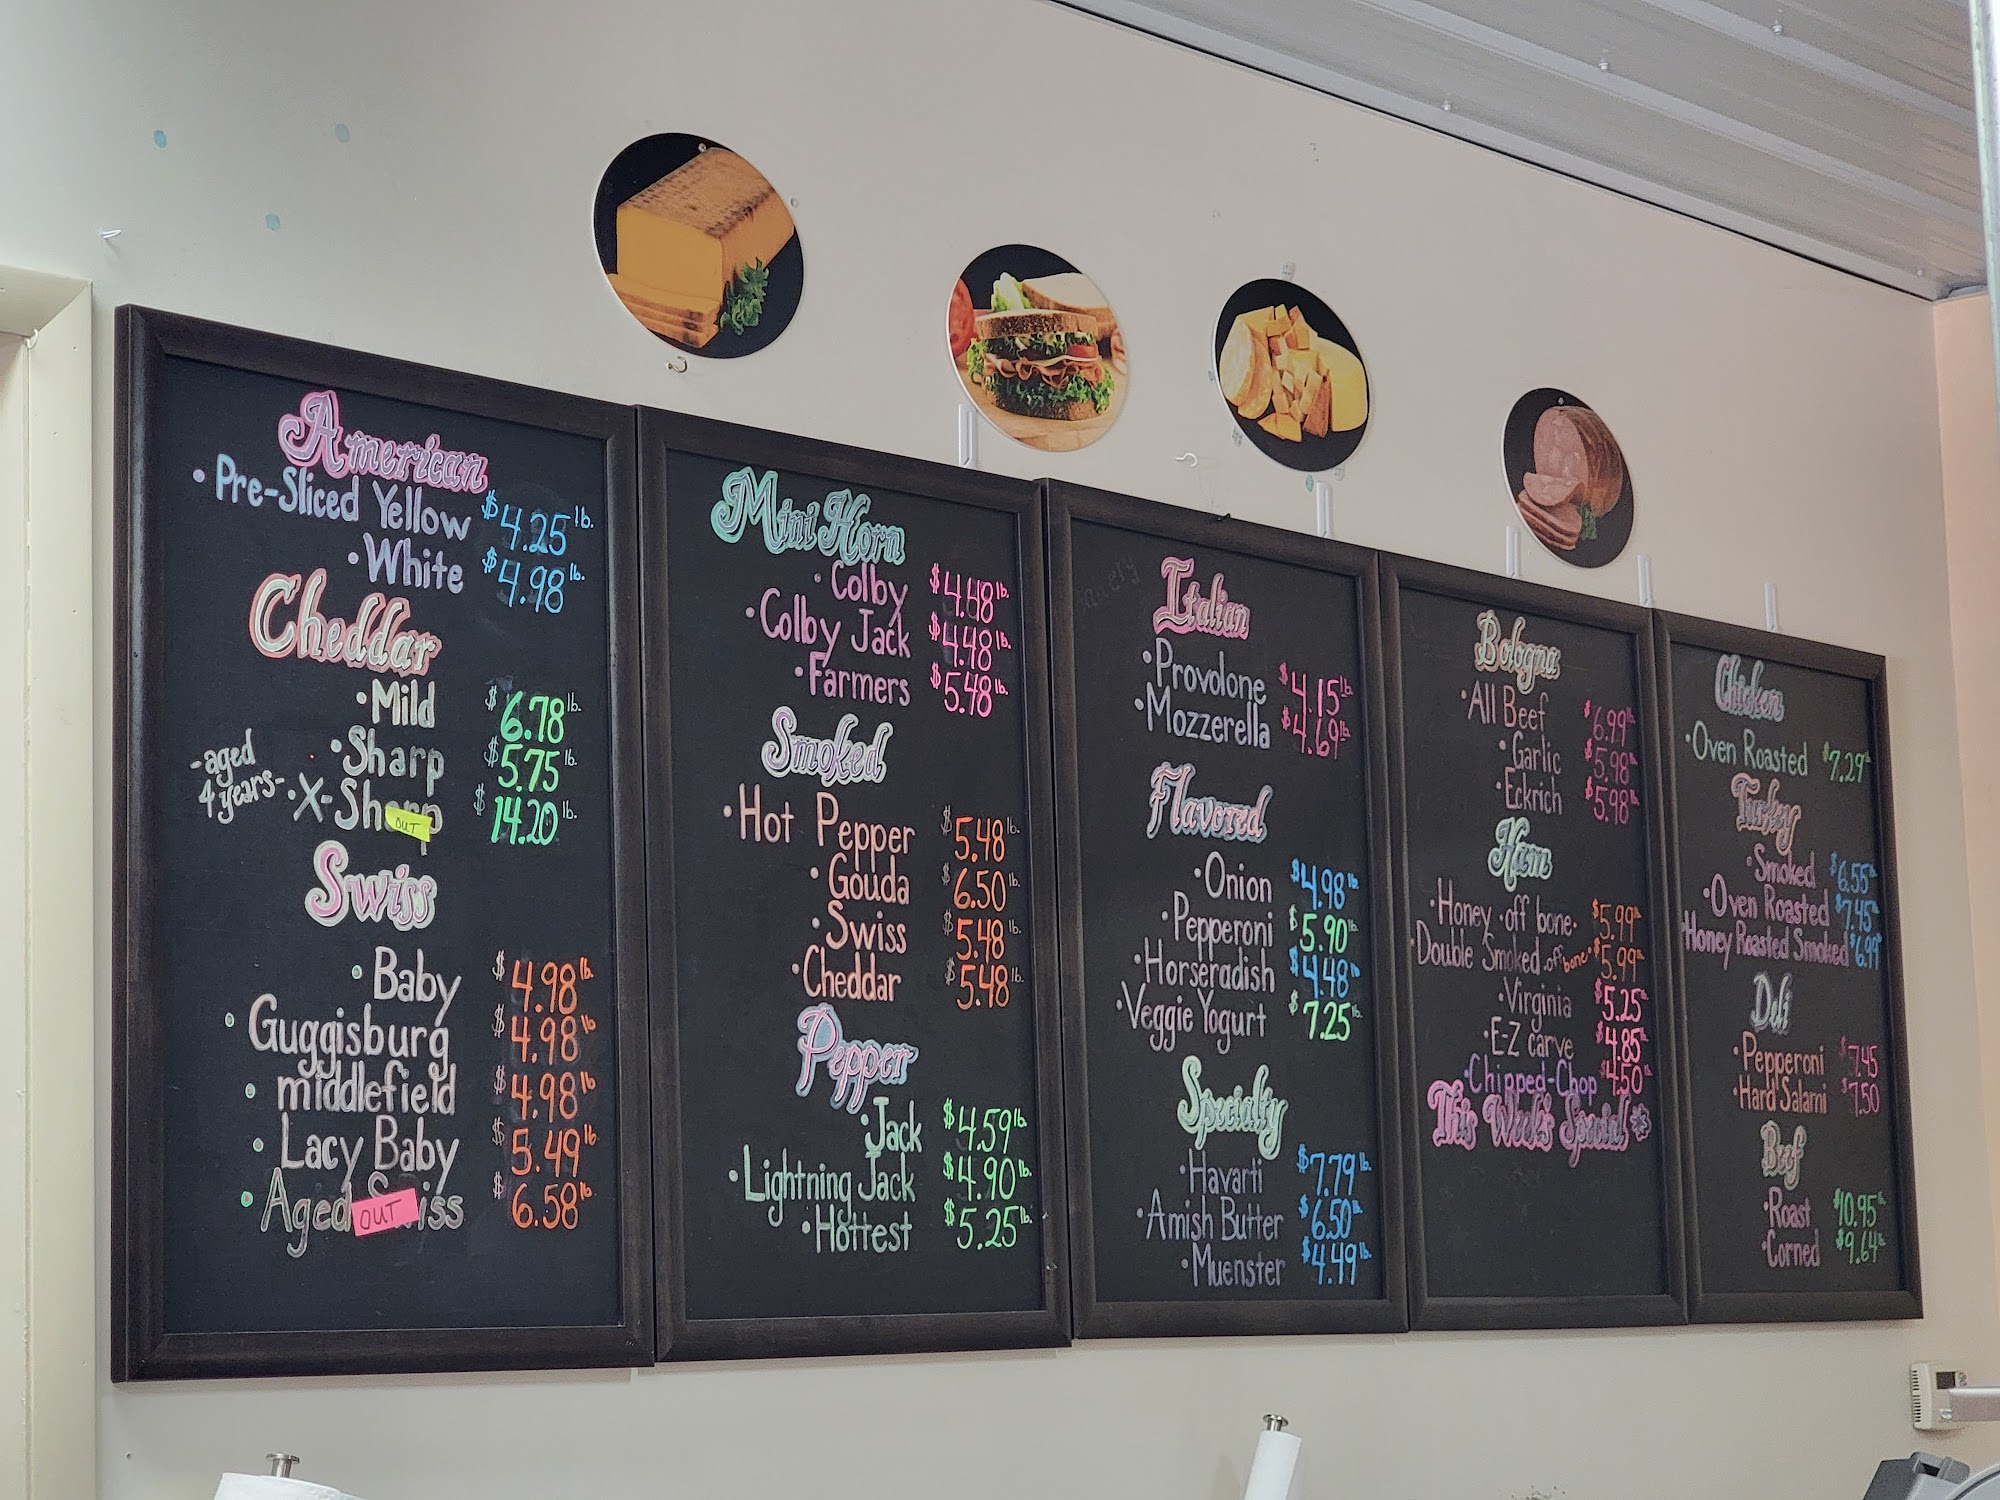 American
• Pre-Sliced Yellow $4.25 lb.
• White $4.98 lb.
Cheddar
• Mild $6.78 lb.
• Sharp $5.75 lb.
-aged 4 years- • X-Sharp $14.20 lb.
OUT
Swiss
• Baby $4.98 lb.
• Guggisburg $4.98 lb
• middlefield $4.98 lb
• Lacy Baby $5.49 lb
• Aged Swiss $6.58 lb.
OUT
Mini Horn
• Colby $4.48 lb.
• Colby Jack $4.48 lb.
• Farmers $5.48 lb.
Smoked
• Hot Pepper $5.48 lb.
• Gouda $6.50 lb.
• Swiss $5.48 lb.
• Cheddar $5.48 lb.
Pepper
• Jack $4.59 lb.
• Lightning Jack $4.90 lb.
• Hottest $5.25 lb.
Italian
• Provolone $4.15 lb.
• Mozzerella $4.69 lb.
Flavored
• Onion $4.98 lb.
• Pepperoni $5.90 lb.
• Horseradish $4.48 lb.
• Veggie Yogurt $7.25 lb.
Specialty
• Havarti $7.79 lb.
• Amish Butter $6.50 lb.
• Muenster $4.49 lb.
Bologna
• All Beef $6.99 lb.
• Garlic $5.98 lb.
• Eckrich $5.98 lb.
Ham
• Honey • off bone • $5.99 lb.
• Double Smoked • off bone • $5.99 lb.
• Virginia $5.25 lb.
• E-Z carve $4.85 lb.
• Chipped-Chop $4.50 lb.
This Week's Special *
Chicken
• Oven Roasted $7.29 lb.
Turkey
• Smoked $6.55 lb.
• Oven Roasted $7.45 lb.
• Honey Roasted Smoked $6.99
Deli
• Pepperoni $7.45
• Hard Salami $7.50
Beef
• Roast $10.95 lb.
• Corned $9.64 lb.